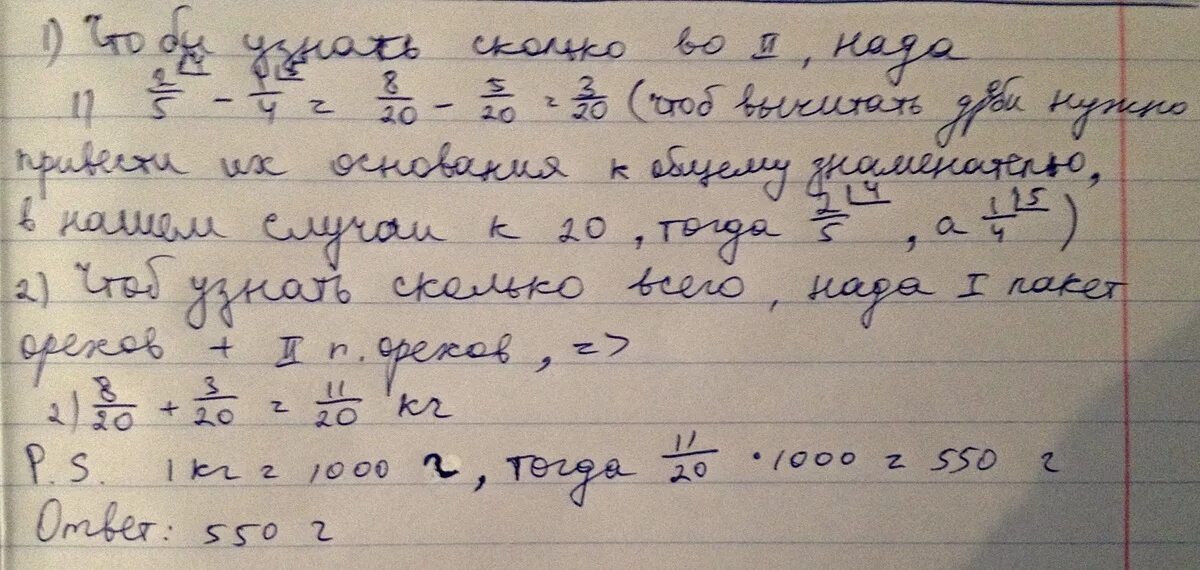 1) Чтобы узнать сколко во II, нада
1) 2/5 ⌊4 - 1/4 ⌊5 = 8/20 - 5/20 = 3/20 (чтоб вычитать дроби нужно
привести их основания к общему знаменателю,
в нашем случаи к 20, тогда 2/5 ⌊4, а 1/4 ⌊5)
2) Чтоб узнать сколько всего, нада I пакет
орехов + II п. орехов, =>
2) 8/20 + 3/20 = 11/20 кг
P.S. 1 кг = 1000 г, тогда 11/20 · 1000 = 550 г
Ответ: 550 г